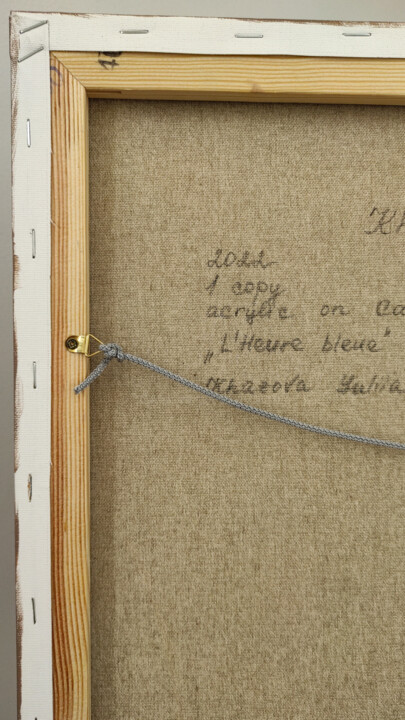 2022
1 copy
acrylic on Ca
„L'Heure bleue"
Khazova Yuliia